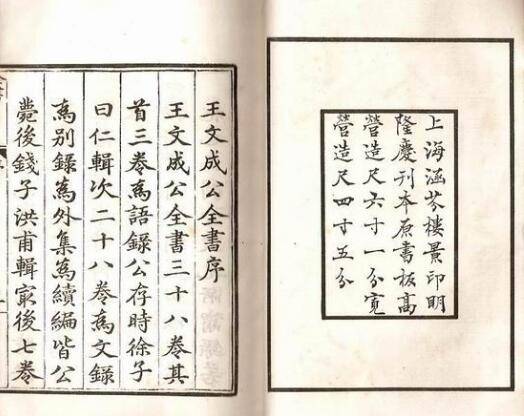 上海涵芬樓景印明
隆慶刊本原書板高
營造尺六寸一分寬
營造尺四寸五分
王文成公全書序
王文成公全書三十八卷其
首三卷爲語錄公存時徐子
曰仁輯次二十八卷爲文錄
爲別錄爲外集爲續編皆公
薨後錢子洪甫輯最後七卷